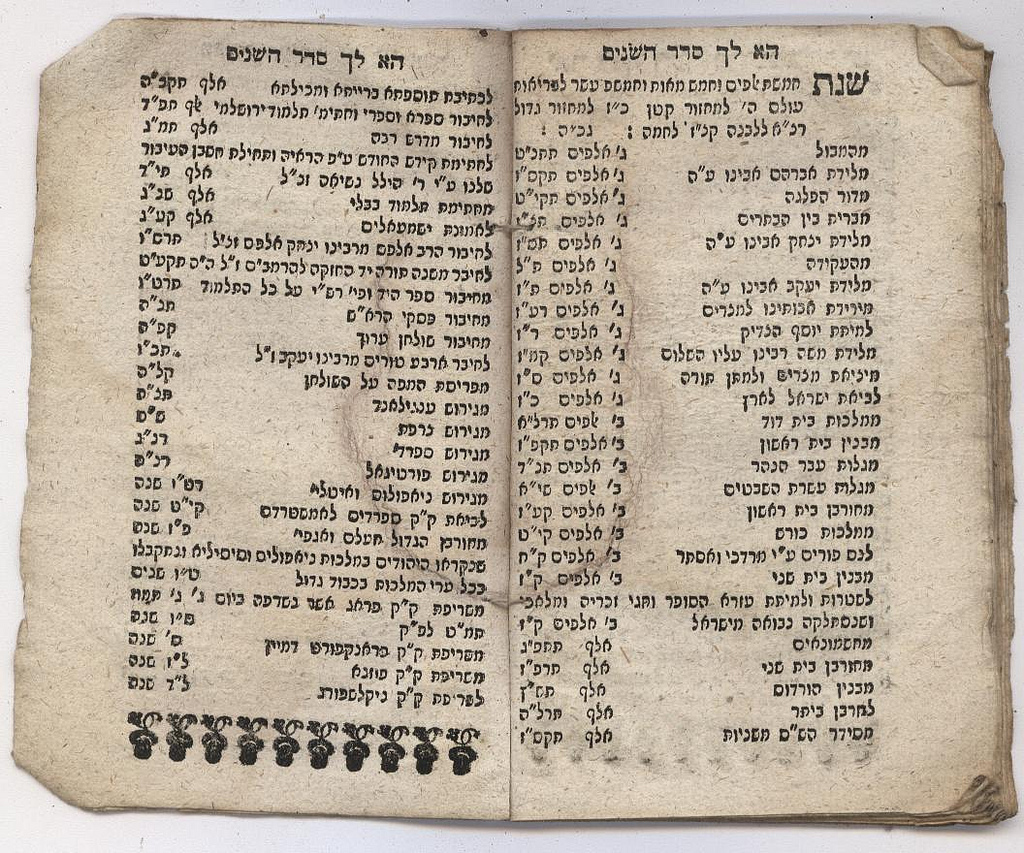 הא לך סדר השנים
שנת חמשת אלפים וחמש מאות וחמשה עשר לבריאות
עולם ה' למחזור קטן כ"ז למחזור גדול
רנ"א ללבנה קנ"ז לחמה :
מהמבול ג' אלפים תתנ"ט
מלידת אברהם אבינו ע"ה ג' אלפים תקס"ז
מדור הפלגה ג' אלפים תקי"ט
מברית בין הבתרים ג' אלפים
מלידת יצחק אבינו ע"ה ג' אלפים תס"ז
מהעקידה ג' אלפים ת"ל
מלידת יעקב אבינו ע"ה ג' אלפים ת"ז
מירידת אבותינו למצרים ג' אלפים רע"ז
למיתת יוסף הצדיק ג' אלפים ר"ו
מלידת משה רבינו עליו השלום ג' אלפים קמ"ז
מיציאת מצרים ולמתן תורה ג' אלפים ס"ז
לביאת ישראל לארץ ג' אלפים כ"ז
ממלכות בית דוד ב' אלפים תרל"א
מבנין בית ראשון ב' אלפים תקפ"ז
מגלות עבר הנהר ב' אלפים תנ"ד
מגלות עשרת השבטים ב' אלפים שי"א
מחורבן בית ראשון ב' אלפים קע"ז
ממלכות כורש ב' אלפים קי"ט
לנס פורים ע"י מרדכי ואסתר ב' אלפים ק"ח
מבנין בית שני ב' אלפים ק"ז
לשטרות ולמיתת עזרא הסופר וחגי זכריה ומלאכי
ושנסתלקה נבואה מישראל ב' אלפים ק"ז
מחשמונאים אלף תתפ"ג
מחורבן בית שני אלף תרפ"ז
מבנין הורדוס אלף תש"ץ
לחרבן ביתר אלף תרל"ה
מסידר הש"ס משניות אלף תקס"ז
הא לך סדר השנים
לכתיבת תוספתא ברייתא ומכילתא אלף תקכ"ה
לחיבור ספרא וספרי וחתימ' תלמוד ירושלמי אלף תפ"ד
לחיבור מדרש רבה אלף תמ"ג
לחתימת קידש החודש ע"פ הראיה ותחילת חשבן העיבור
שלנו ע"י ר' הילל נשיאה זצ"ל אלף תי"ד
מחתימת תלמוד בבלי אלף שנ"ג
לאמונת ישמעאלים אלף קע"ג
לחיבור הרב אלפס מרבינו יצחק אלפס זצ"ל תרס"ז
לחיבר משנה תורה יד החזקה להרמב"ם ז"ל ה"ה תקע"ט
מחיבור ספר היד ופי' רש"י על כל התלמוד תרט"ו
מחיבור פסקי הרא"ש תנ"ה
מחיבור שולחן ערוך קפ"ה
לחיבר ארבע טורים מרבינו יעקב ז"ל תכ"ו
מפריסת המפה על השולחן קל"ה
מגירוש ענגילאנד תנ"ה
מגירוש צרפת ש"ס
מגירוש ספרד רנ"ג
מגירוש פורטיגאל רנ"ס
מגירוש ניאפולום ואיטלי' רט"ו שנה
לביאת ק"ק ספרדים לאמשטרדם קי"ט שנה
מחורבן הגדול חעלם ואגפי' פ"ז שנה
שנקראו היהודים במלכות ניאפולים וסיסיליא ונתקבלו
בכל ערי המלכות בכבוד גדול ט"ו שנים
משריפת ק"ק פראג אשר נשרפה ביום ג' ג' תמוז
תמ"ט לפ"ק ס"ו שנה
משריפת ק"ק פראנקפורט דמיין מ' שנה
משריפת ק"ק פוזנא ל"ז שנה
לשריפת ק"ק ניקלשפורג ל"ד שנה